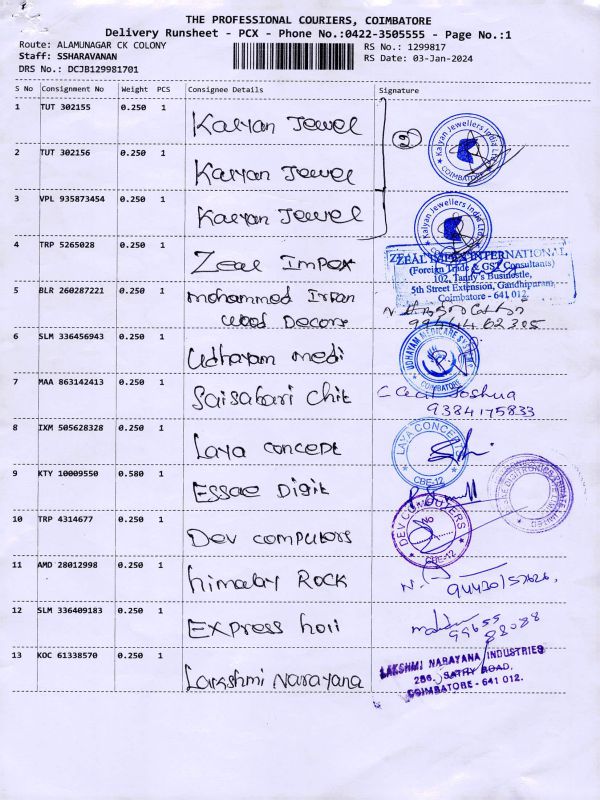 THE PROFESSIONAL COURIERS, COIMBATORE
Delivery Runsheet - PCX - Phone No.:0422-3505555 - Page No.:1
Route: ALAMUNAGAR CK COLONY
RS No.: 1299817
Staff: SSHARAVANAN
RS Date: 03-Jan-2024
DRS No.: DCJB129981701
S No Consignment No Weight PCS Consignee Details Signature
1 TUT 302155 0.250 1 Kalyan Jewel
Kalyan Jewellers India Ltd.
COIMBATORE
2 TUT 302156 0.250 1 Kalyan Jewel
3 VPL 935873454 0.250 1 Kalyan Jewel
Kalyan Jewellers India Ltd.
4 TRP 5265028 0.250 1 Zeal Impex
ZEAL IMPEX INTERNATIONAL
(Foreign Trade & GST Consultants)
102, Tanny's Businostle,
5th Street Extension, Gandhipuram,
Coimbatore - 641 012.
5 BLR 260287221 0.250 1 mohammed Irfan
wood Decors
6 SLM 336456943 0.250 1 Udhayam medi
UDHAYAM MEDICARE SYSTEMS
COIMBATORE
7 MAA 863142413 0.250 1 Saisabari Chit
Joshua
9384175833
8 IXM 505628328 0.250 1 Laya concept
LAYA CONCEPTS
CBE-12
9 KTY 10009550 0.580 1 Essae Digit
10 TRP 4314677 0.250 1 Dev computors
DEV COMPUTERS
CBE-12
11 AMD 28012998 0.250 1 himalay Rock
12 SLM 336409183 0.250 1 Express holi
99655
88088
13 KOC 61338570 0.250 1 Lakshmi Narayana
LAKSHMI NARAYANA INDUSTRIES
286, SATHY ROAD,
COIMBATORE - 641 012.